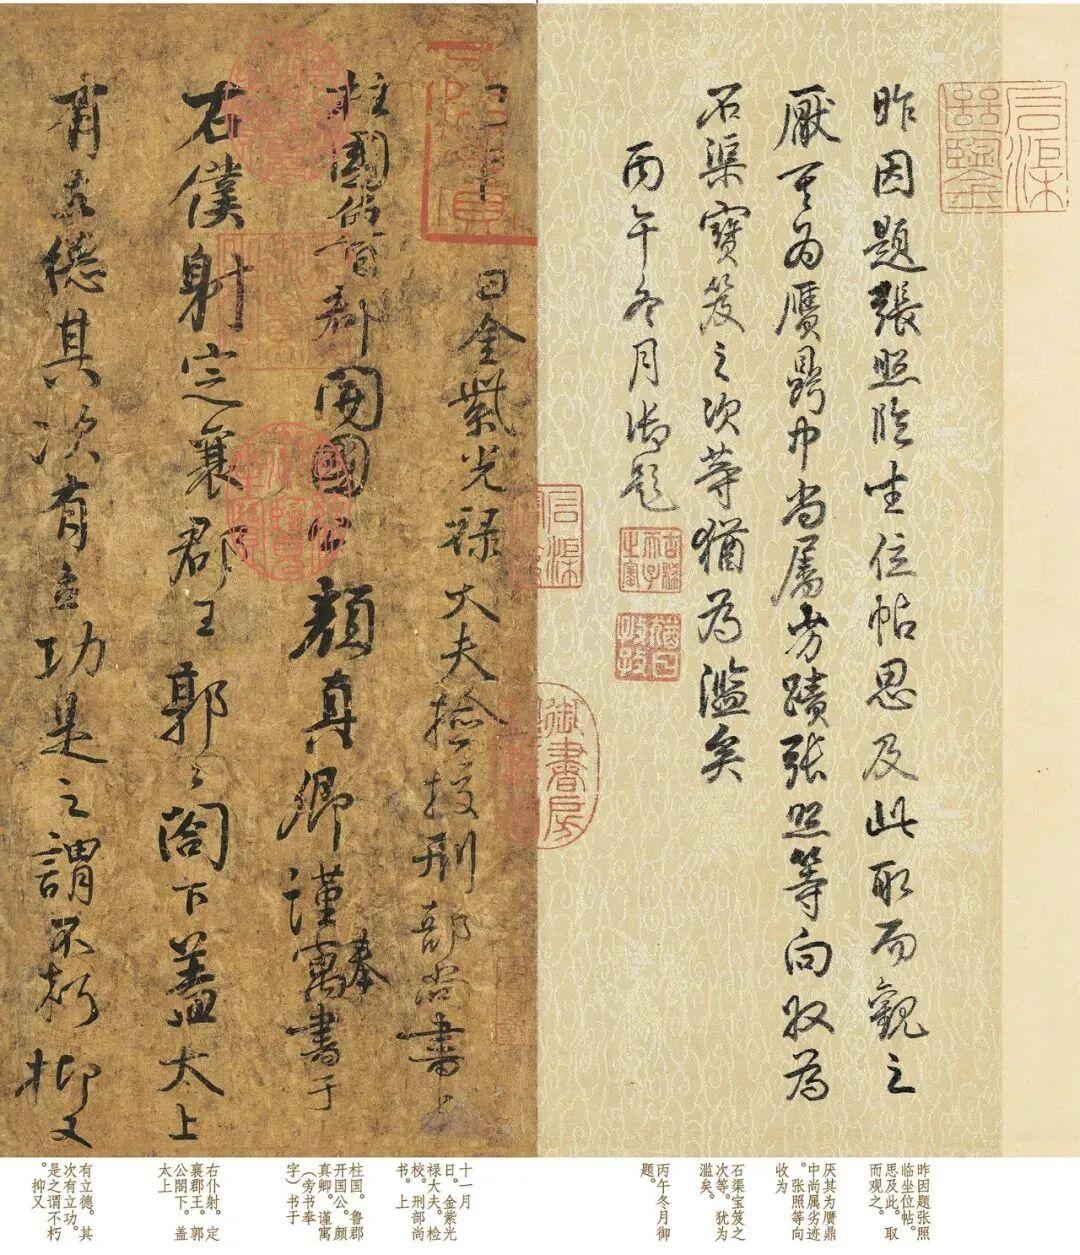 昨因題張照臨坐位帖思及此取而觀之
厭其為贋鼎中尚屬劣蹟張照等向收為
石渠寶笈之次等猶為濫矣
丙午冬月御題
古稀天子之寶
猶日孜孜
御書房
日金紫光祿大夫檢挍刑部尚書上
柱國魯郡開國公顏真卿謹奉寓書于
右僕射定襄郡王郭公閤下蓋太上
有立德其次有立功是之謂不朽抑又
昨因题张照
临坐位帖。
思及此。取
而观之。
厌其为贋鼎
中尚属劣迹
。张照等向
收为
石渠宝笈之
次等。犹为
滥矣。
丙午冬月御
题。
十一月
日。金紫光
禄大夫。检
校。刑部尚
书。上
柱国。鲁郡
开国公。颜
真卿。谨寓
（旁书奉
字）书于
右仆射。定
襄郡王。郭
公閤下。盖
太上
有立德。其
次有立功。
是之谓不朽
。抑又